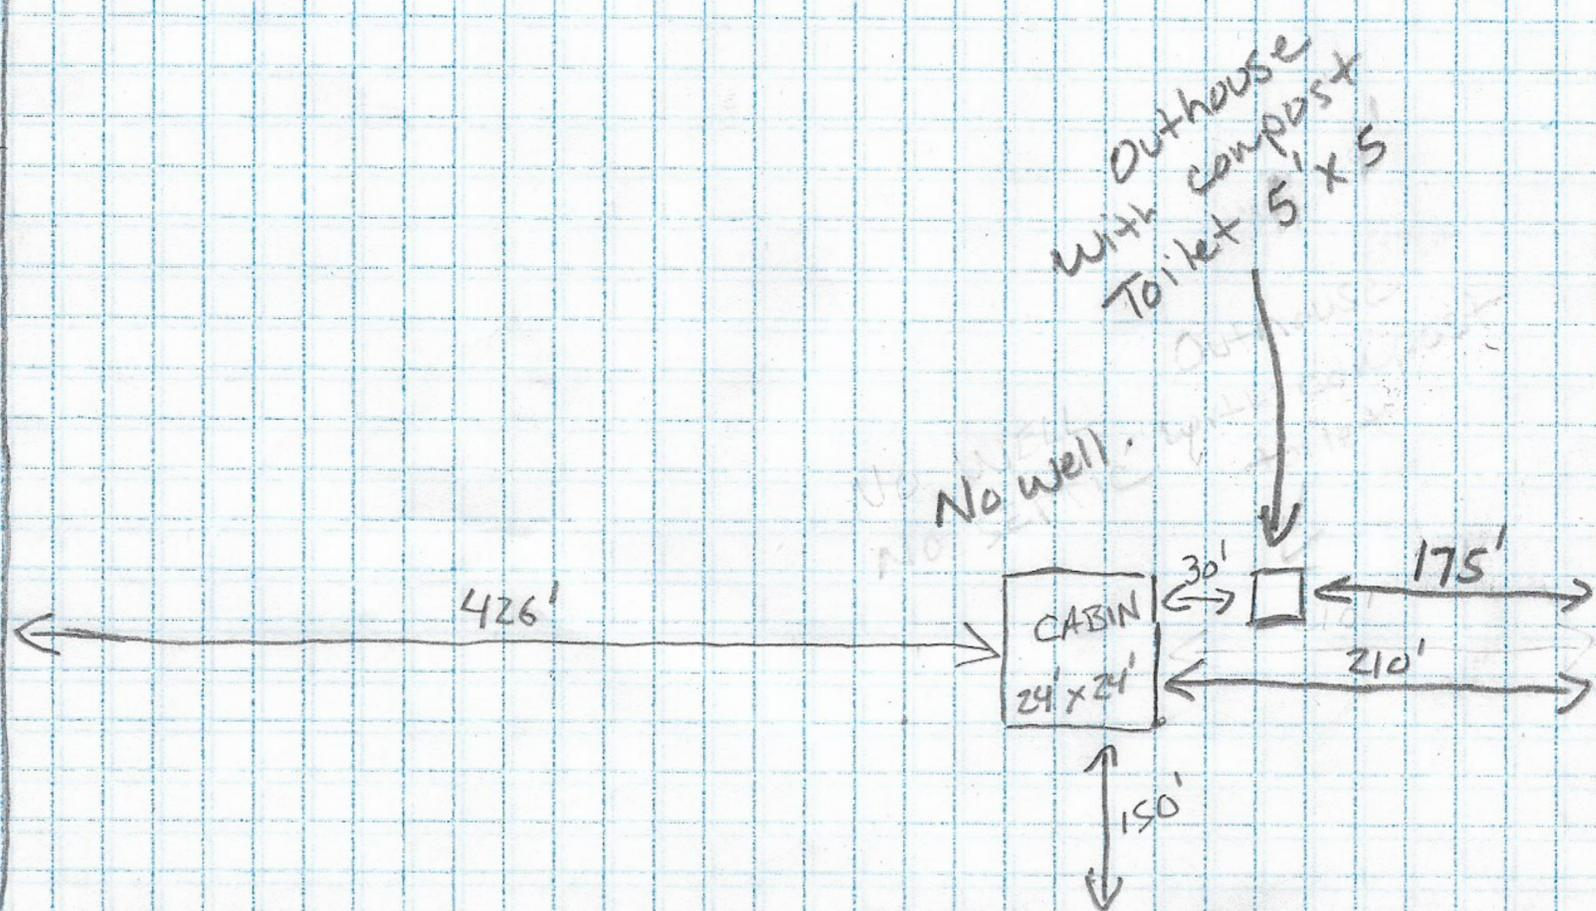 Outhouse
with compost
Toilet 5' x 5'
No well.
30'
175'
426'
CABIN
24' x 24'
210'
150'